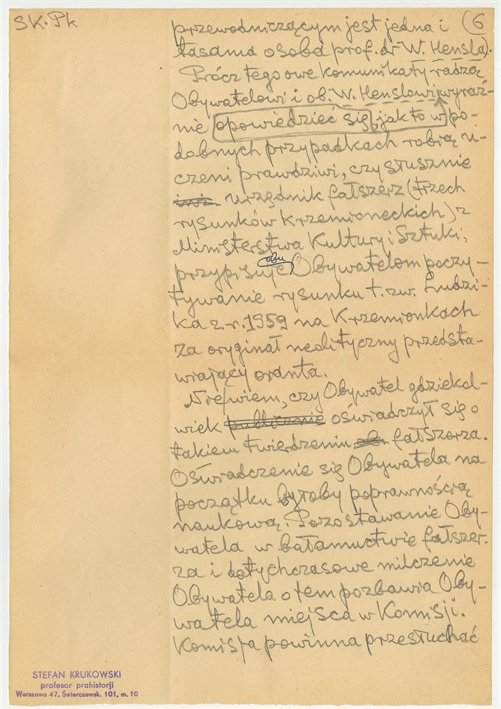 SK. Pk
(6
przewodniczącym jest jedna i
tasama osoba prof. dr W. Hensla).
Prócz tego owe komunikaty radzą
Obywatelowi i ob. W. Henslowi wyraź-
nie opowiedzieć się, jak to w po-
dobnych przypadkach robią u-
czeni prawdziwi, czy słusznie
urzędnik fałszerz (trzech
rysunków krzemioneckich) z
Ministerstwa Kultury i Sztuki,
przypisuje obu Obywatelom poczy-
tywanie rysunku t. zw. Ludzi-
ka z r. 1959 na Krzemionkach
za oryginał neolityczny przedsta-
wiający oranta.
Nie wiem, czy Obywatel gdziekol-
wiek publicznie oświadczył się o
takiem twierdzeniu fałszerza.
Oświadczenie się Obywatela na
początku byłoby poprawnością
naukową. Pozostawanie Oby-
watela w bałamuctwie fałszer-
za i dotychczasowe milczenie
Obywatela o tem pozbawia Oby-
watela miejsca w Komisji.
Komisja powinna przesłuchać
STEFAN KRUKOWSKI
profesor prahistorji
Warszawa 47, Świerczewsk. 101, m. 10